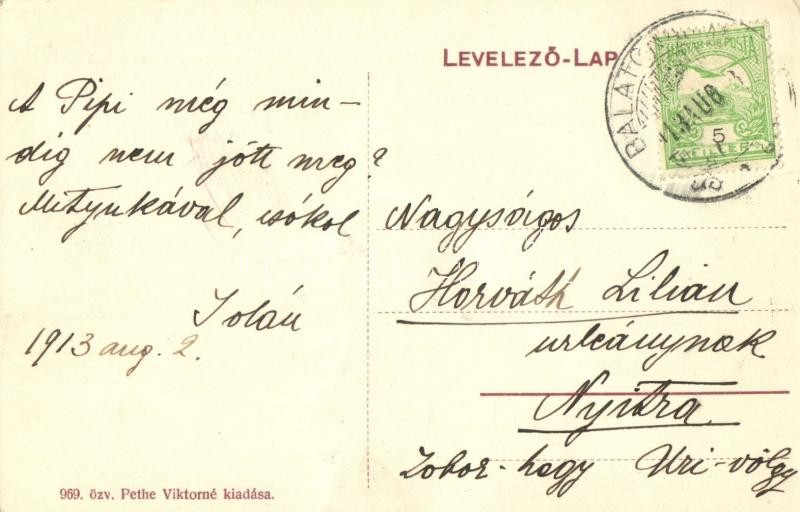 LEVELEZŐ-LAP
MAGYAR KIR. POSTA
5
BALATON
913 AUG
A Pipi még min-
dig nem jött meg?
Mityukával, csókol
Jolán
1913 aug. 2.
Nagyságos
Horváth Lilian
urleánynak
Nyitra
Zobor-hegy Uri-völgy
969. özv. Pethe Viktorné kiadása.